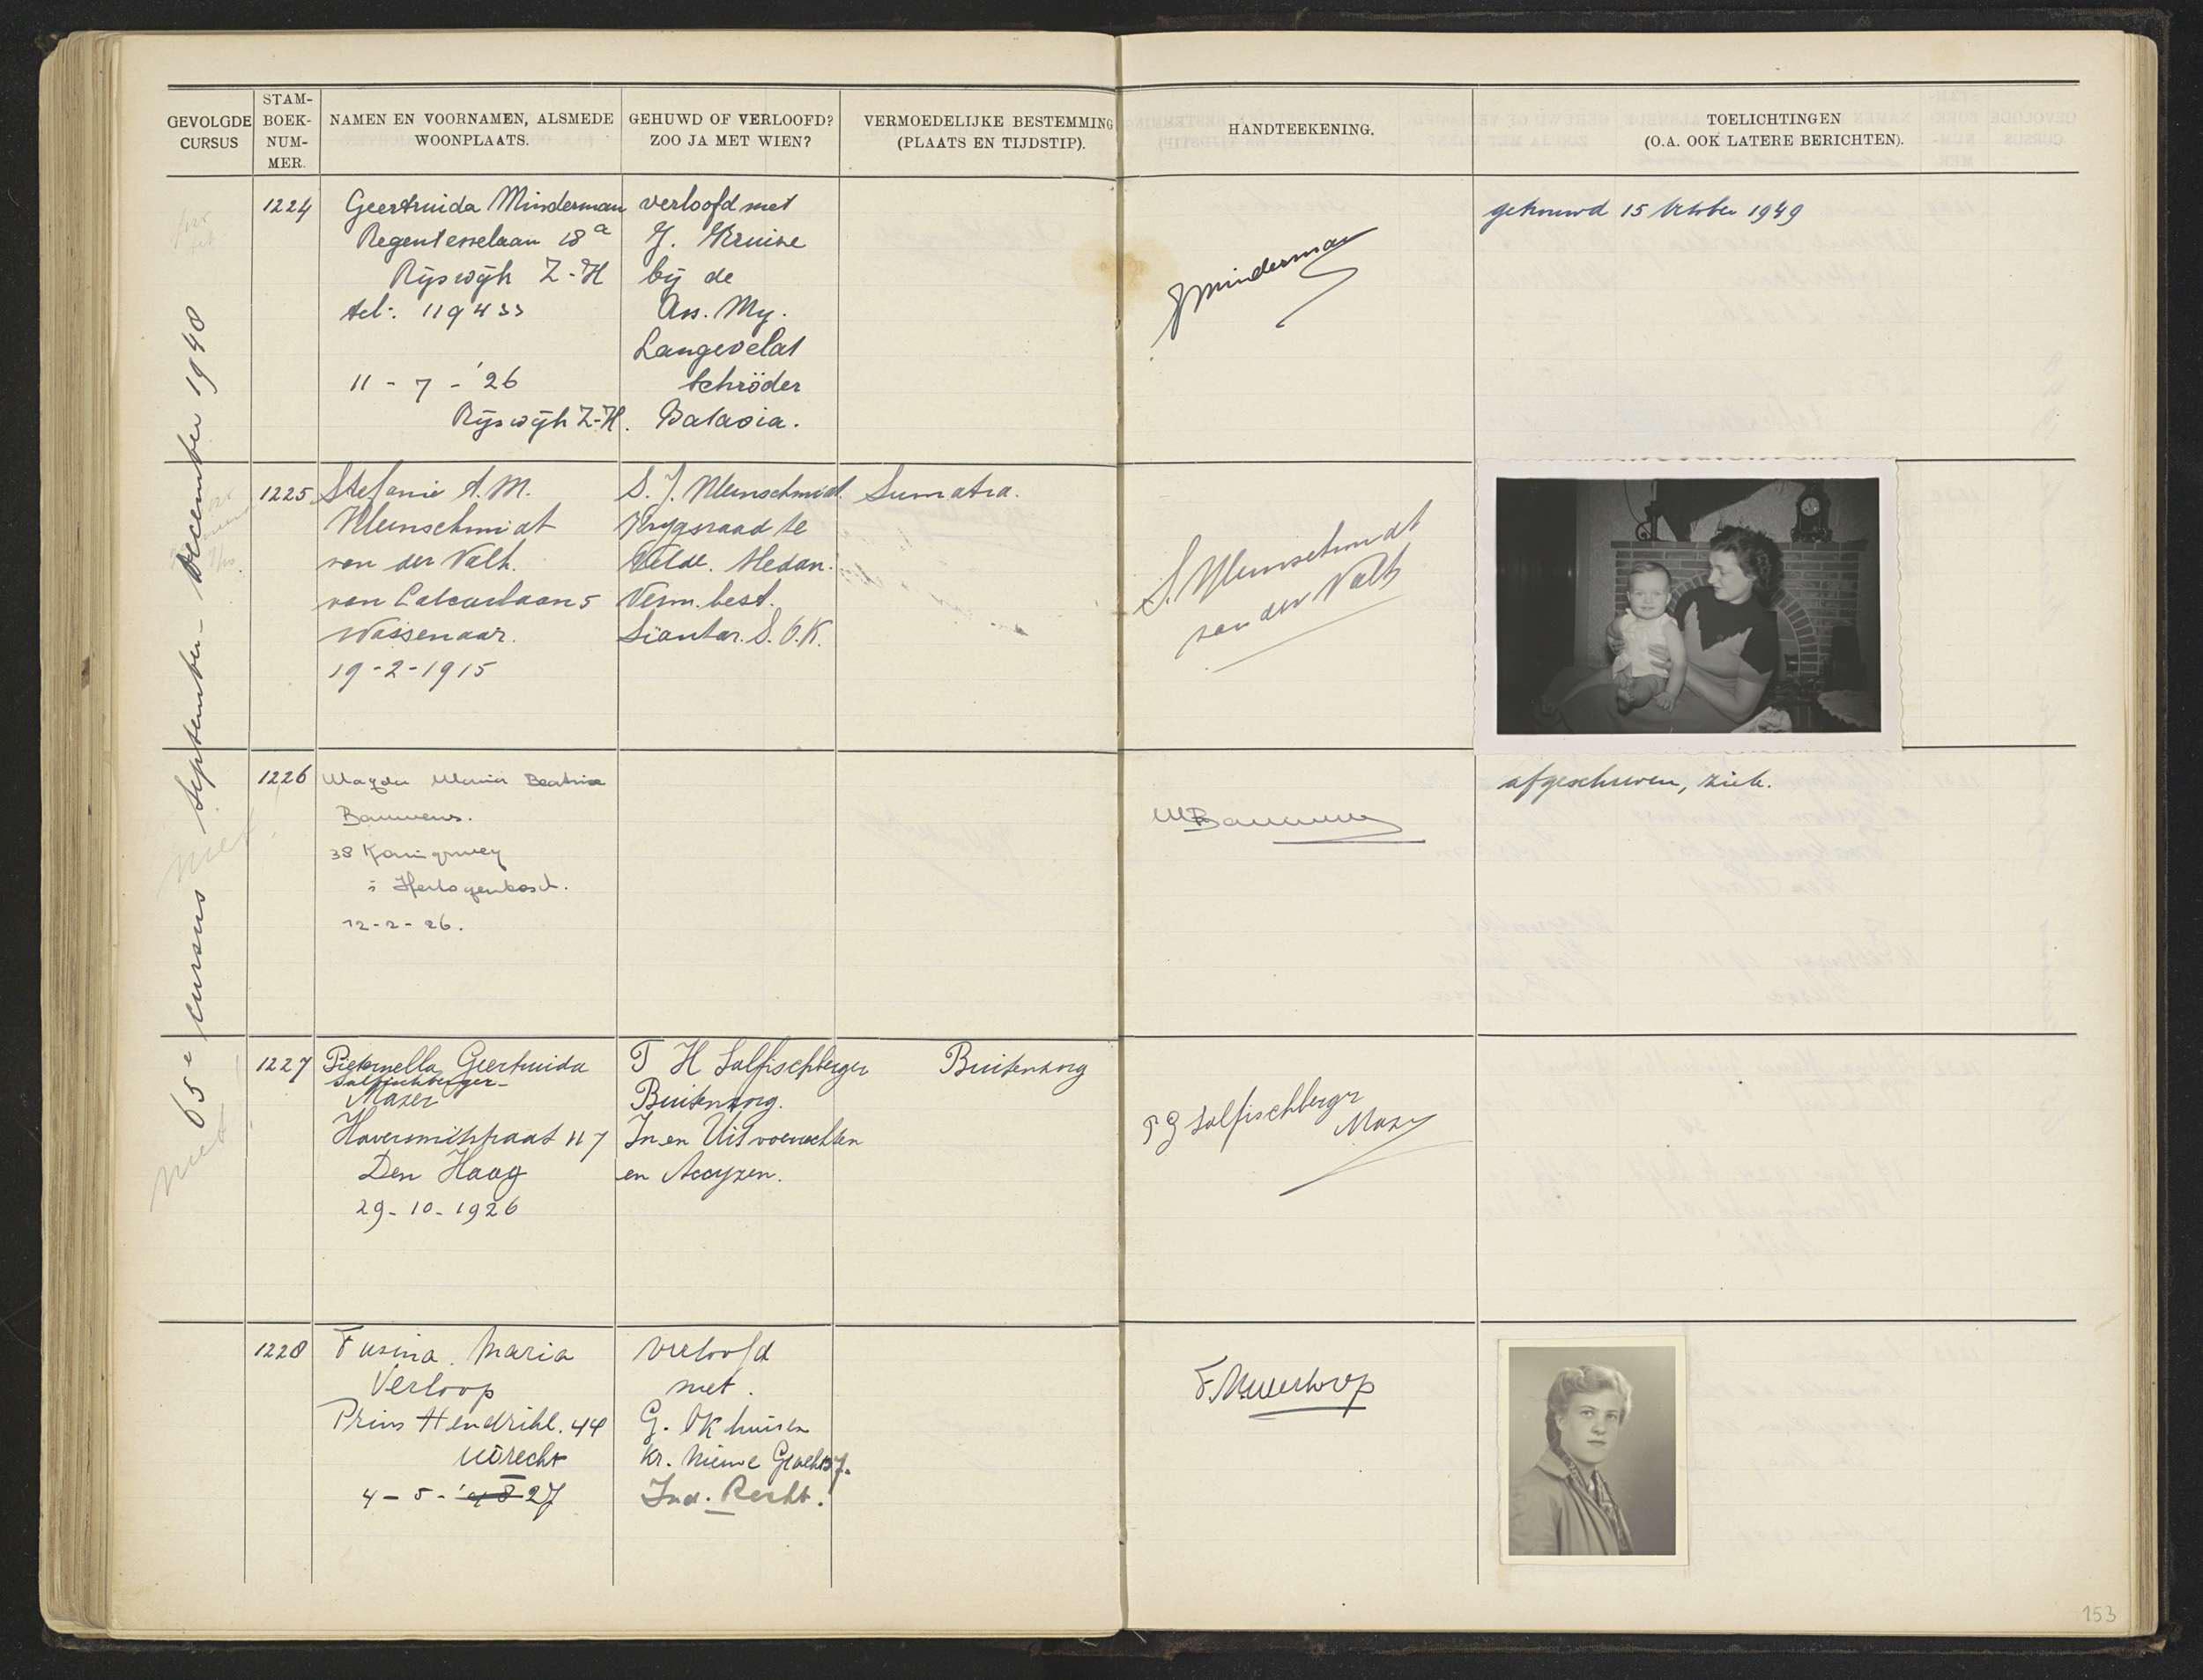 GEVOLGDE
CURSUS
STAM-
BOEK-
NUM-
MER.
NAMEN EN VOORNAMEN, ALSMEDE
WOONPLAATS.
GEHUWD OF VERLOOFD?
ZOO JA MET WIEN?
VERMOEDELIJKE BESTEMMING
(PLAATS EN TIJDSTIP).
HANDTEEKENING.
TOELICHTINGEN
(O.A. OOK LATERE BERICHTEN).
65e cursus September - December 1948
1224
Geertruida Minderman
Regentesselaan 18a
Ryswyk Z-H
tel: 119433
11 - 7 - '26
Ryswyk Z-H.
verloofd met
J. Kruine
bij de
Ass. My.
Langeveldt
Schröder
Batavia.
GMinderman
getrouwd 15 October 1949
1225
Stefanie A. M.
Kleinschmidt
van der Valk.
van Calcarlaan 5
Wassenaar.
19-2-1915
S. J. Kleinschmidt.
Krygsraad te
Velde. Medan.
Verm. best.
Siantar. S.O.K.
Sumatra.
S. Kleinschmidt
van der Valk
1226
Magda Maria Beatrix
Bauwens.
38 Koningsweg
's Hertogenbosch.
12-2-26.
MBauwens
afgeschreven, ziek.
1227
Pieternella Geertruida
Salfischberger-
Mazer
Haversmitstraat 117
Den Haag
29-10-1926
T H Salfischberger
Buitenzorg.
In en Uitvoerrechten
en Accynzen.
Buitenzorg
P G Salfischberger
Mazer
1228
Fusina. Maria
Verloop
Prins Hendrikl. 44
Utrecht
4 - 5 - '27
verloofd
met.
G. Okhuisen
Kr. Nieuwe Gracht 37.
Ind. Recht.
F.M.Verloop
153